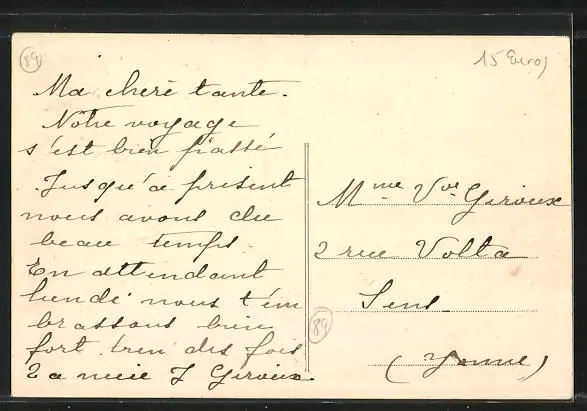 89
15 Euros
Ma cheré tante.
Notre voyage
s'est bien passé
Jusqu'a present
nous avons du
beau temps.
En attendant
lundi nous t'em
brassons bien
fort bien des fois
J Giroux
Mme Vve Giroux
2 rue Volta
Sens
(Yonne)
89